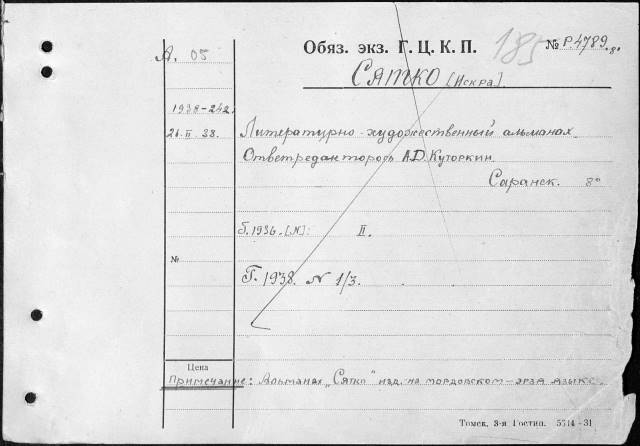 А. 05
Обяз. экз. Г. Ц. К. П. 185 № Р.4789. 8°
Сятко [Искра].
1938-242.
21.II 38. Литературно-художественный альманах.
Ответредактторось А.Д. Куторкин.
Саранск. 8°
Г. 1936. [N]: II.
№
Г. 1938. N 1/3.
Цена
Примечание: Альманах „Сятко" изд. на мордовском-эрзя языке.
Томск, 3-я Гостип. 5514-31